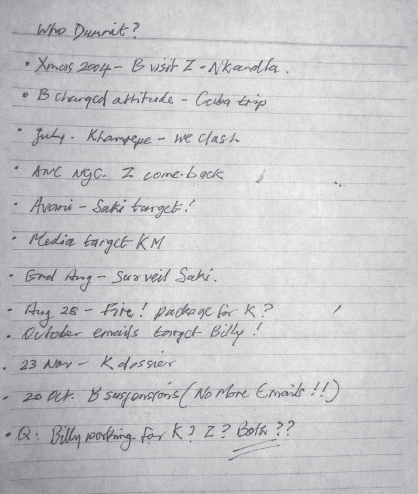 Who Dunnit?
• Xmas 2004 – B visit Z – Nkandla.
• B changed attitude – Cuba trip
• July. Khampepe – we clash
• ANC NGC. Z come-back
• Avani – Saki target!
• Media target KM
• End Aug – Surveil Saki.
• Aug 28 – Fire! package for K?
• October emails target Billy!
• 23 Nov – K dossier
• 20 Oct. B suspensions (No More Emails!!)
• Q: Billy working for K? Z? Both??